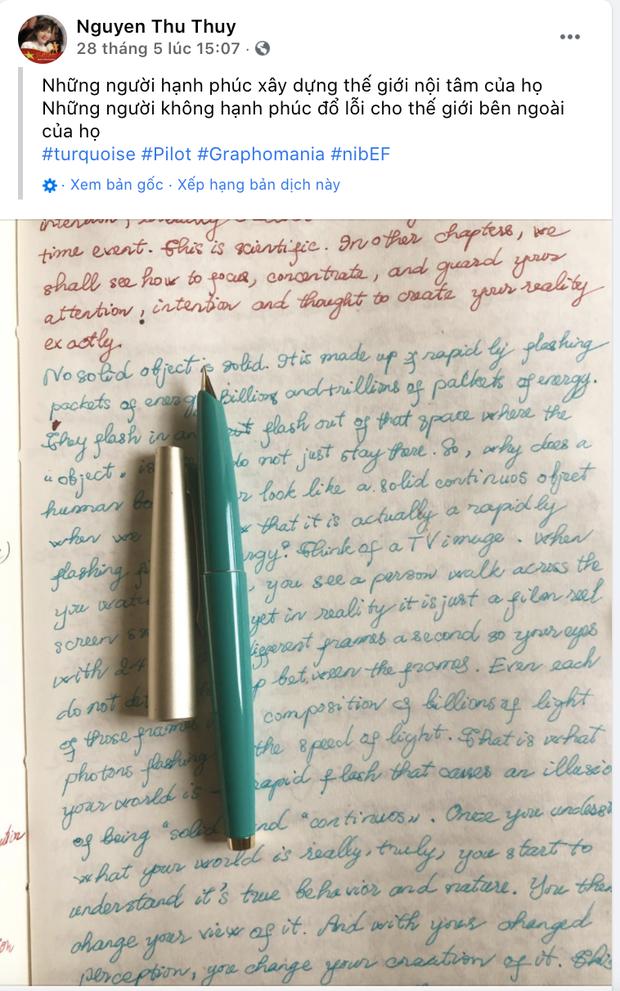 Nguyen Thu Thuy
28 tháng 5 lúc 15:07 ·
Những người hạnh phúc xây dựng thế giới nội tâm của họ
Những người không hạnh phúc đổ lỗi cho thế giới bên ngoài
của họ
#turquoise #Pilot #Graphomania #nibEF
· Xem bản gốc · Xếp hạng bản dịch này
time event. This is scientific. In other chapters, we
shall see how to focus, concentrate, and guard your
attention, intention and thought to create your reality
exactly.
No solid object is solid. It is made up of rapidly flashing
packets of energy. Billions and trillions of packets of energy.
They flash in an flash out of that space where the
"object" is do not just stay there. So, why does a
human look like a solid continuos object
when we that it is actually a rapidly
flashing Think of a TV image. When
you you see a person walk across the
screen yet in reality it is just a film reel
with 24 different frames a second so your eyes
do not between the frames. Even each
of those frames composition of billions of light
photons flashing the speed of light. That is what
your world is - rapid flash that causes an
of being "solid" and "continuos". Once you
what your world is really, truly, you start to
understand it's true behavior and nature. You then
change your view of it. And with your changed
perception, you change your creation of it. This